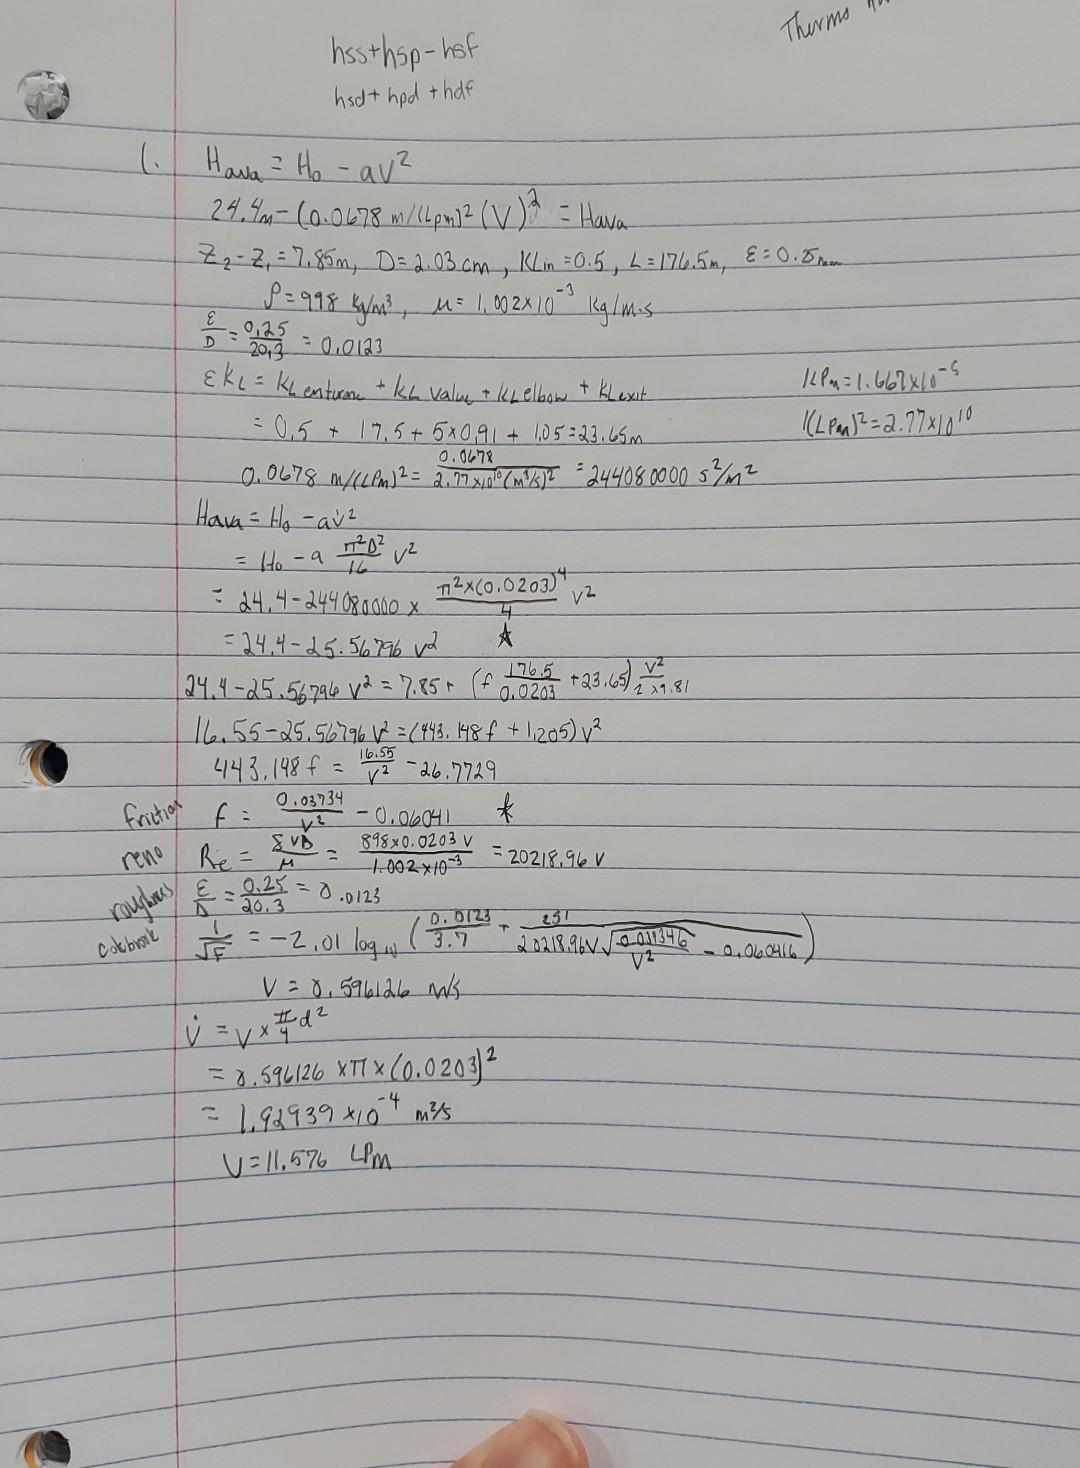 Thermo
hss+hsp-hsf
hsd+hpd+hdf
1. Hava = H₀ - aV²
24.4m-(0.0678 m/(Lpm)²(V)² = Hava
Z₂-Z₁=7.85m, D=2.03cm, KLin=0.5, L=176.5m, ε=0.25mm
ρ=998 kg/m³, μ=1.002x10⁻³ kg/m·s
ε/D = 0.25/20.3 = 0.0123
εKL = KL enturanc + KL value + KL elbow + KL exit
1LPm=1.667x10⁻⁵
= 0.5 + 17.5+5x0.91 + 1.05=23.65m
1(LPm)²=2.77x10¹⁰
0.0678 m/(LPm)²= 0.0678/2.77x10¹⁰(m³/s)² = 244080000 s²/m²
Hava = H₀ - av̇²
= H₀ - a π²D²/16 V²
= 24.4-244080000 x π²x(0.0203)⁴/4 V²
= 24.4-25.56796 V² ☆
24.4-25.56796 V² = 7.85+ (f 176.5/0.0203 +23.65) V²/2x9.81
16.55-25.56796 V² = (443.148f + 1.205)V²
443.148f = 16.55/V² -26.7729
friction f = 0.03734/V² - 0.06041 *
reno Re = ρVD/μ = 898x0.0203 V/1.002x10⁻³ = 20218.96 V
roughness ε/D = 0.25/20.3 = 0.0123
1/√F = -2.01 log₁₀ (0.0123/3.7 + 251/20218.96V√0.037346/V² - 0.060416)
V = 0.596126 m/s
V̇ = V x π/4 d²
= 0.596126 xπx(0.0203)²
= 1.92939 x10⁻⁴ m³/s
V=11.576 LPm